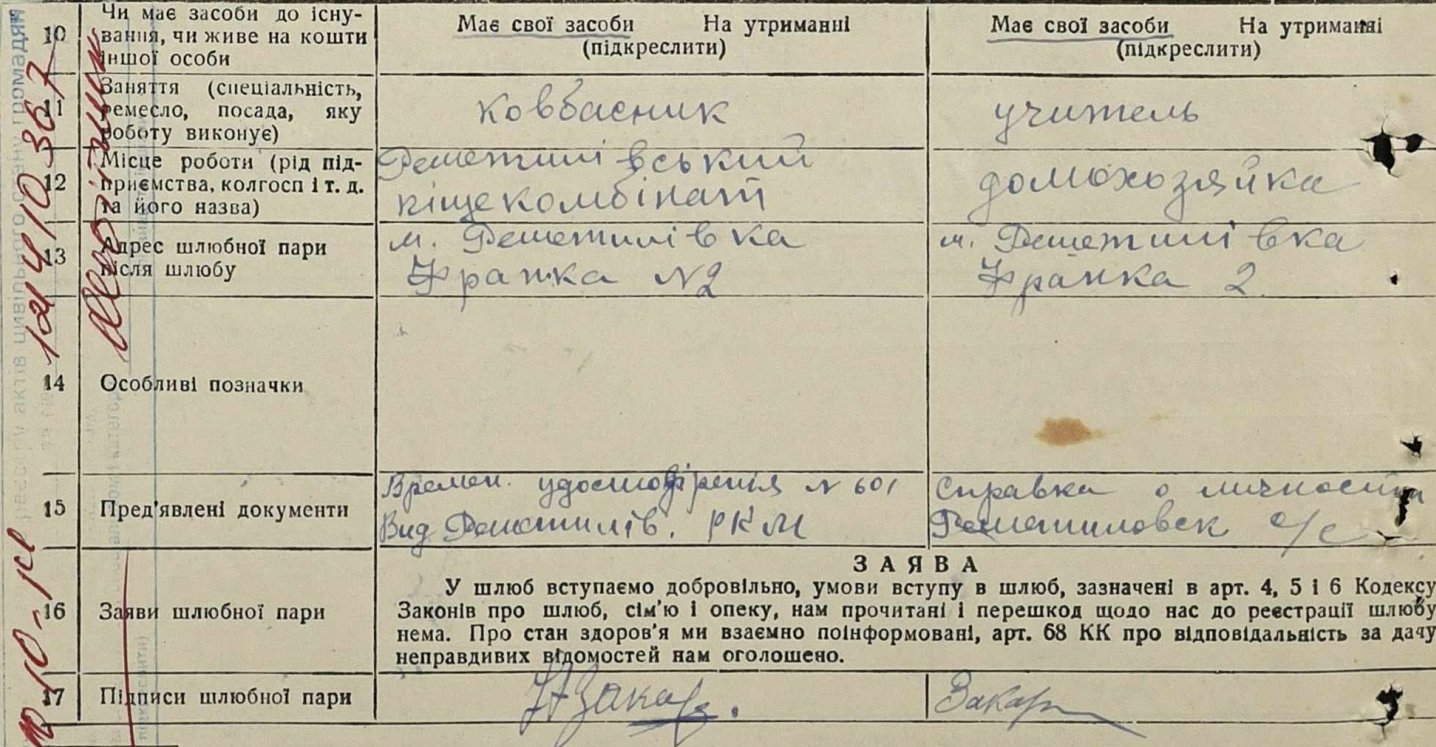 10 Чи має засоби до існу-
вання, чи живе на кошти
іншої особи
Має свої засоби На утриманні
(підкреслити)
Має свої засоби На утриманні
(підкреслити)
11 Заняття (спеціальність,
ремесло, посада, яку
роботу виконує)
ковбасник
учитель
12 Місце роботи (рід під-
приємства, колгосп і т. д.
та його назва)
Решетилівський
піщекомбінат
домохозяйка
13 Адрес шлюбної пари
після шлюбу
м. Решетилівка
Франка №2
м. Решетилівка
Франка 2
14 Особливі позначки
15 Пред'явлені документи
Времен. удостовіренія № 601
Вид Решетилів. РКМ
Справка о личности
Решетиловск с/с
16 Заяви шлюбної пари
ЗАЯВА
У шлюб вступаємо добровільно, умови вступу в шлюб, зазначені в арт. 4, 5 і 6 Кодексу
Законів про шлюб, сім'ю і опеку, нам прочитані і перешкод щодо нас до реєстрації шлюбу
нема. Про стан здоров'я ми взаємно поінформовані, арт. 68 КК про відповідальність за дачу
неправдивих відомостей нам оголошено.
17 Підписи шлюбної пари